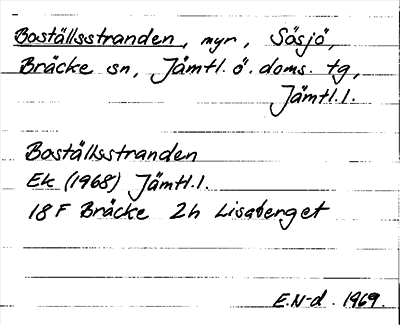 Boställsstranden, myr, Sösjö,
Bräcke sn, Jämtl. ö. doms. tg,
Jämtl. l.
Boställsstranden
Ek (1968) Jämtl. l.
18 F Bräcke 2h Lisaberget
E.N-d. 1969.